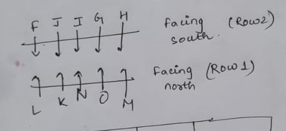 F J I G H
facing (Row2)
south.
facing (Row1)
north
L K N O M